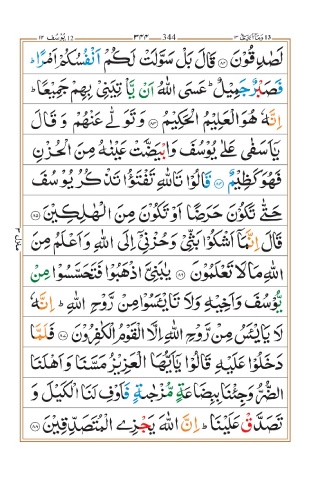 وما ابرئ ١٣ ٣٤٤ 344 يوسف ١٢
لَصٰدِقُوۡنَ ﴿۸۲﴾ قَالَ بَلۡ سَوَّلَتۡ لَـكُمۡ اَنۡفُسُكُمۡ اَمۡرًا ؕ
فَصَبۡرٌ جَمِيۡلٌ ؕ عَسَى اللّٰهُ اَنۡ يَّاۡتِيَنِىۡ بِهِمۡ جَمِيۡعًا ؕ
اِنَّهٗ هُوَ الۡعَلِيۡمُ الۡحَكِيۡمُ ﴿۸۳﴾ وَتَوَلّٰى عَنۡهُمۡ وَقَالَ
يٰۤاَسَفٰى عَلٰى يُوۡسُفَ وَابۡيَـضَّتۡ عَيۡنٰهُ مِنَ الۡحُـزۡنِ
فَهُوَ كَظِيۡمٌ ﴿۸۴﴾ قَالُوۡا تَاللّٰهِ تَفۡتَؤُا تَذۡكُرُ يُوۡسُفَ
حَتّٰى تَكُوۡنَ حَرَضًا اَوۡ تَكُوۡنَ مِنَ الۡهَالِكِيۡنَ ﴿۸۵﴾
قَالَ اِنَّمَاۤ اَشۡكُوۡا بَثِّـىۡ وَحُزۡنِىۡۤ اِلَى اللّٰهِ وَاَعۡلَمُ مِنَ
اللّٰهِ مَا لَا تَعۡلَمُوۡنَ ﴿۸۶﴾ يٰبَنِىَّ اذۡهَبُوۡا فَتَحَسَّسُوۡا مِنۡ
يُّوۡسُفَ وَاَخِيۡهِ وَلَا تَايۡــَٔسُوۡا مِنۡ رَّوۡحِ اللّٰهِ ؕ اِنَّهٗ
لَا يَايۡــَٔسُ مِنۡ رَّوۡحِ اللّٰهِ اِلَّا الۡقَوۡمُ الۡكٰفِرُوۡنَ ﴿۸۷﴾ فَلَمَّا
دَخَلُوۡا عَلَيۡهِ قَالُوۡا يٰۤاَيُّهَا الۡعَزِيۡزُ مَسَّنَا وَاَهۡلَنَا
الضُّرُّ وَجِئۡنَا بِبِضَاعَةٍ مُّزۡجٰٮةٍ فَاَوۡفِ لَنَا الۡكَيۡلَ وَ
تَصَدَّقۡ عَلَيۡنَا ؕ اِنَّ اللّٰهَ يَجۡزِى الۡمُتَصَدِّقِيۡنَ ﴿۸۸﴾